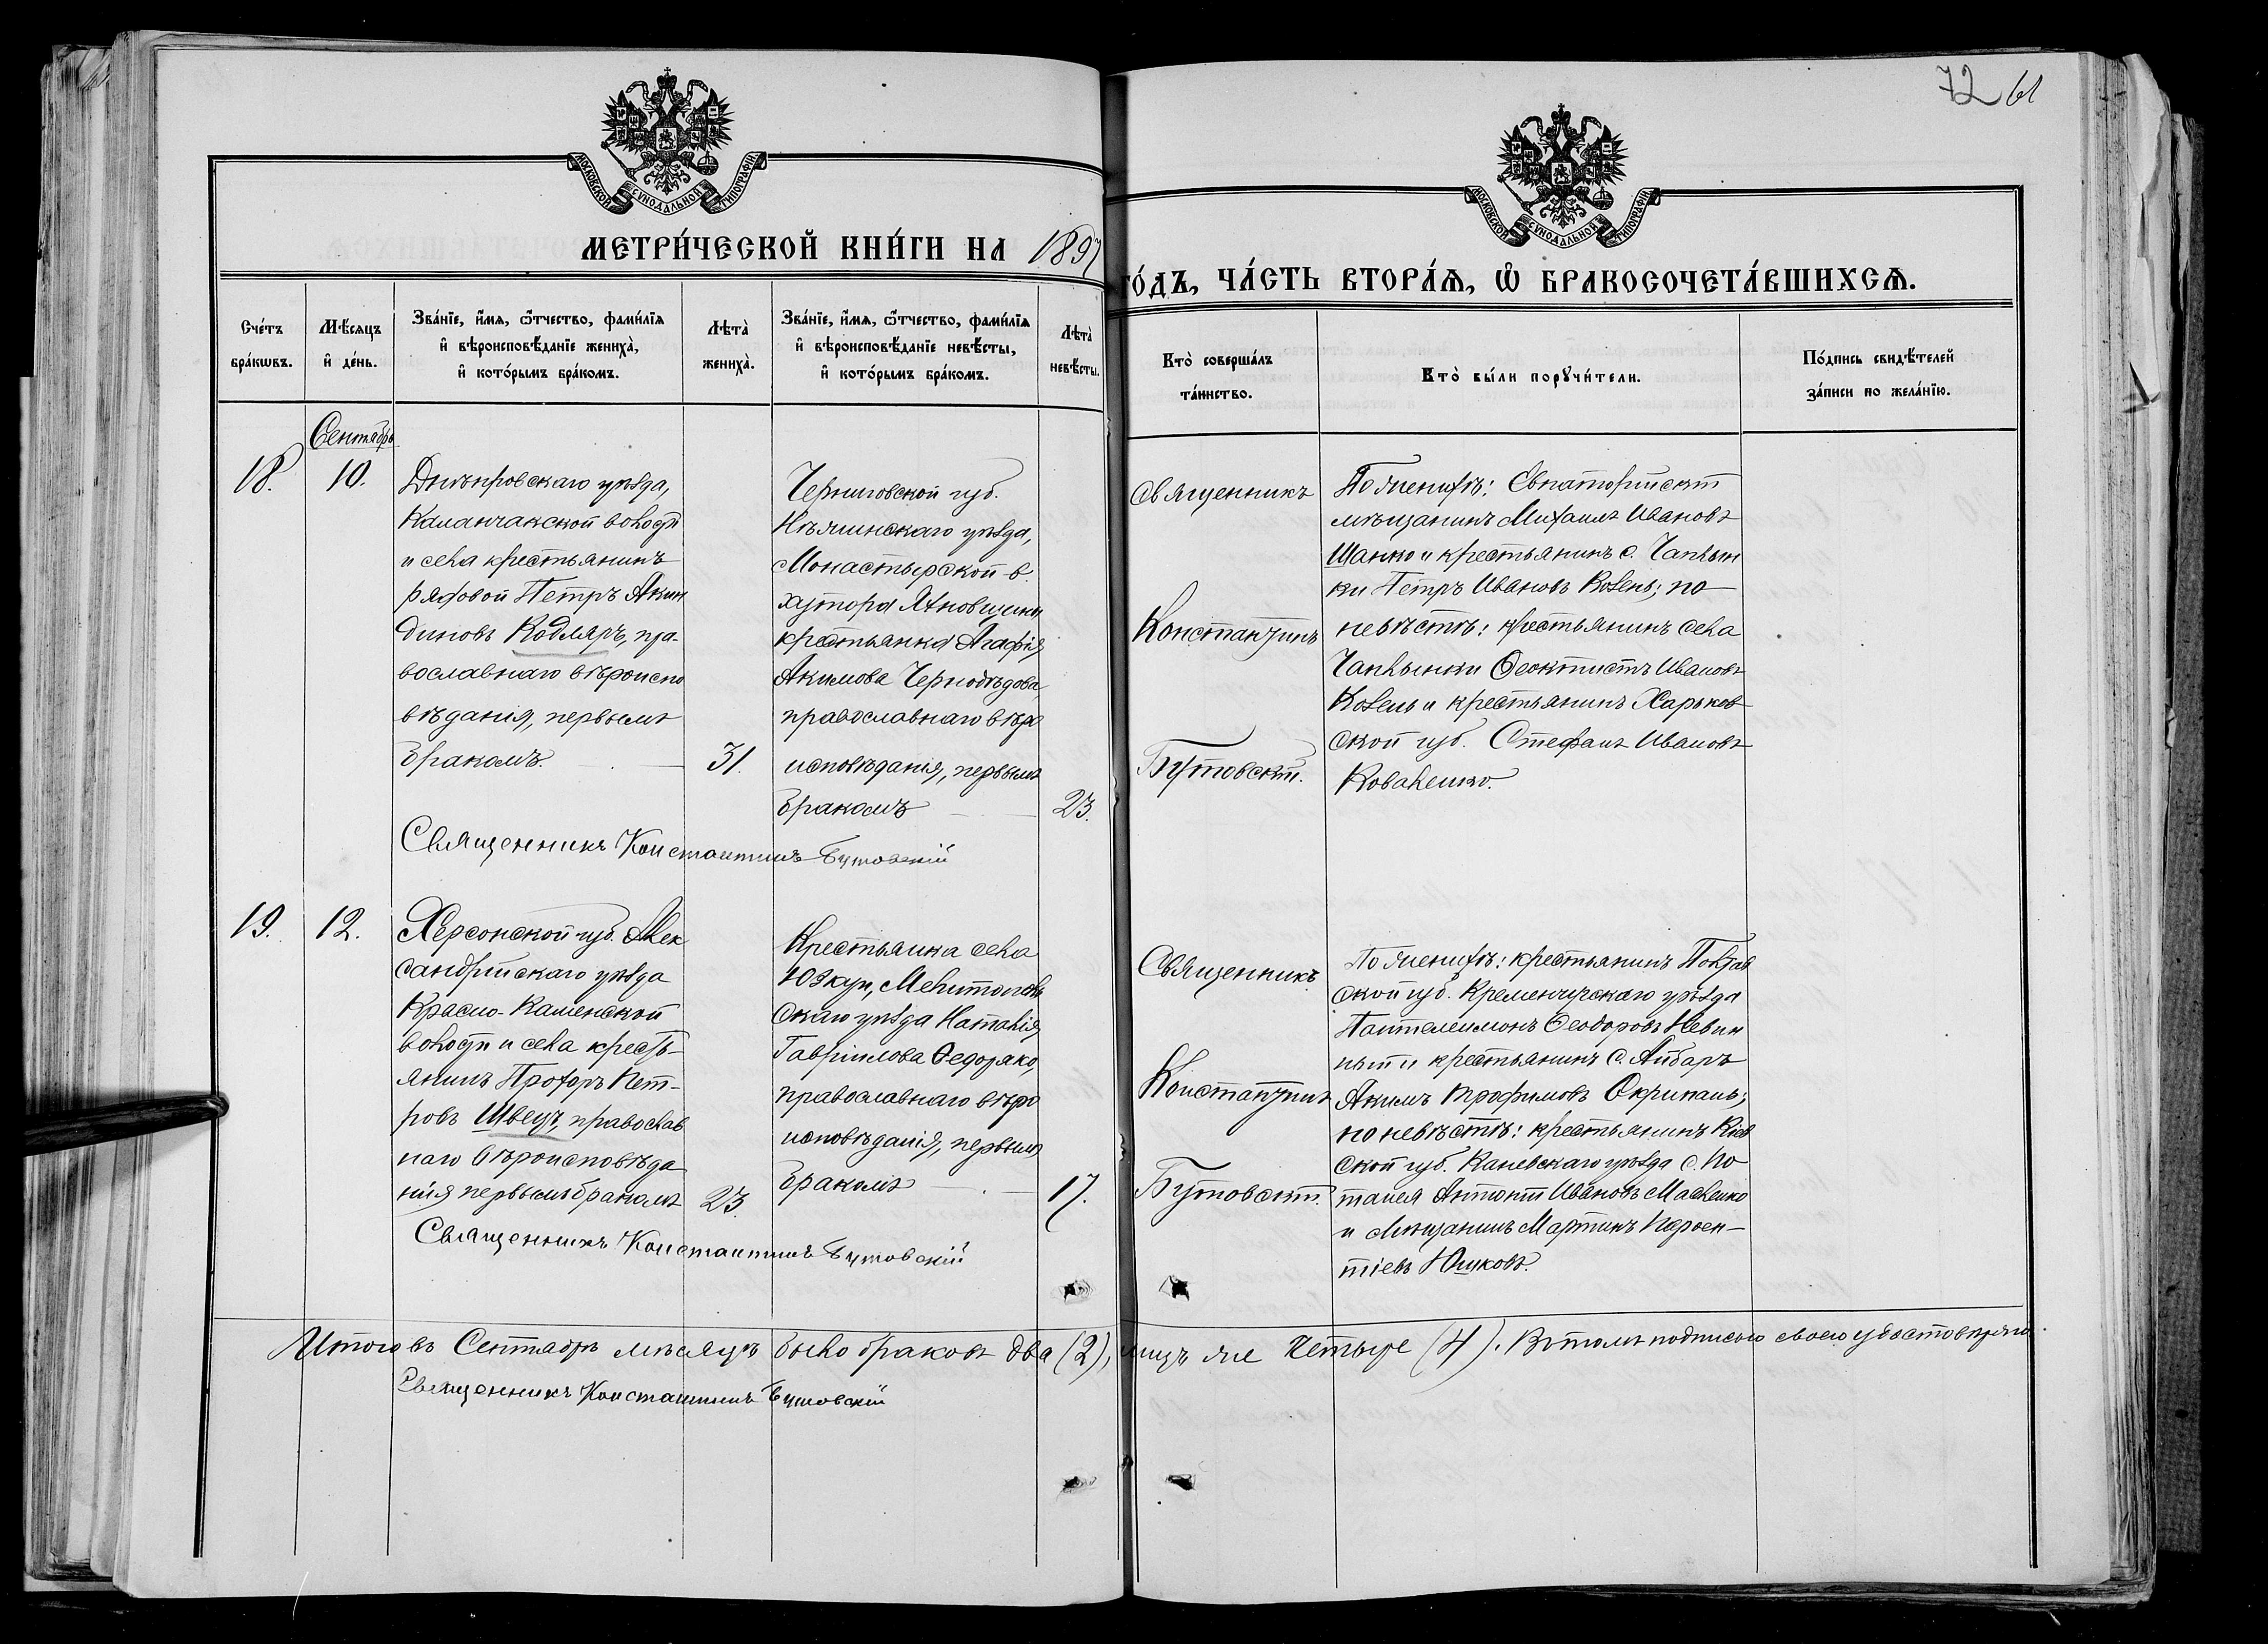 72 61
МОСКОВСКОЙ СУНОДАЛЬНОЙ ТИПОГРАФІИ
МОСКОВСКОЙ СУНОДАЛЬНОЙ ТИПОГРАФІИ
МЕТРИ́ЧЕСКОЙ КНИ́ГИ НА 1897
ГО́ДЪ, ЧА́СТЬ ВТОРА́Ѧ, Ѡ҆ БРАКОСОЧЕТА́ВШИХСѦ.
Сче́тъ
бра́кѡвъ.
Мѣ́сяцъ
и҆ де́нь.
Зва́нїе, и҆́мѧ, ѻ҆́тчество, фами́лїѧ
и҆ вѣроисповѣ́данїе жениха̀,
и҆ кото́рымъ бра́комъ.
Лѣта̀
жениха̀.
Зва́нїе, и҆́мѧ, ѻ҆́тчество, фами́лїѧ
и҆ вѣроисповѣ́данїе невѣ́сты,
и҆ кото́рымъ бра́комъ.
Лѣта̀
невѣ́сты.
Кто̀ соверша́лъ
та́инство.
Кто̀ бы́ли порꙋчи́тели.
По́дпись свидѣ́телей
за́писи по жела́нїю.
Сентябрь
18.
10.
Днѣпровскаго уѣзда,
Каланчакской волости
и села крестьянинъ
рядовой Петръ Акин
диновъ Кодляръ, пра-
вославнаго вѣроиспо
вѣданія, первымъ
бракомъ.
31.
Черниговской губ.
Нѣжинскаго уѣзда,
Монастырской в.
хутора Яхновщины
крестьянка Агафія
Акимова Чернодѣдова
православнаго вѣро
исповѣданія, первымъ
бракомъ
23.
Священникъ
Константинъ
Бутовскій.
По женихѣ: Евпаторійскій
мѣщанинъ Михаилъ Ивановъ
Шанко и крестьянинъ с. Чаплын
ки Петръ Ивановъ Козель; по
невѣстѣ: крестьянинъ села
Чаплынки Ѳеоктистъ Ивановъ
Козель и крестьянинъ Харьков
ской губ. Стефанъ Ивановъ
Коваленко.
Священникъ Константинъ Бутовскій
19.
12.
Херсонской губ. Алек
сандрійскаго уѣзда
Красно-Каменской
волости и села кресть-
янинъ Прохоръ Пет-
ровъ Швецъ, православ
наго вѣроисповѣда
нія первымъ бракомъ
23.
Крестьянка села
Юзкуи, Мелитополь
скаго уѣзда Наталія
Гавріилова Ѳедоряко,
православнаго вѣро
исповѣданія, первымъ
бракомъ
17.
Священникъ
Константинъ
Бутовскій.
По женихѣ: крестьянинъ Полтав
ской губ. Кременчугскаго уѣзда
Пантелеимонъ Ѳеодоровъ Невин
ный и крестьянинъ с. Айбаръ
Акимъ Трофимовъ Скрипаль;
по невѣстѣ: крестьянинъ Кіев
ской губ. Каневскаго уѣзда с. По
тапея Антоній Ивановъ Масленко
и мѣщанинъ Мартинъ
тіевъ Юшковъ.
Священникъ Константинъ Бутовскій
Итого въ Сентябрѣ мѣсяцѣ было браковъ два (2), лицъ же четыре (4). Въ томъ подписью своею удостовѣряю.
Священникъ Константинъ Бутовскій